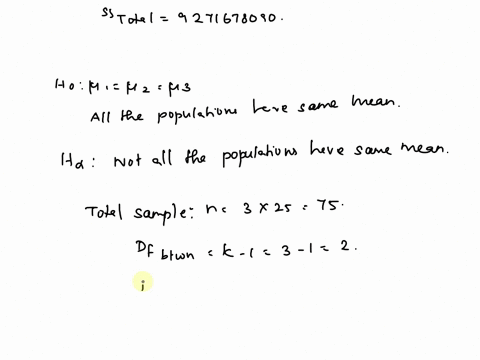 SS Total = 9271678090.
H0: μ1 = μ2 = μ3
All the populations have same mean.
Hα: Not all the populations have same mean.
Total sample: n = 3 × 25 = 75.
Df btwn = k - 1 = 3 - 1 = 2.